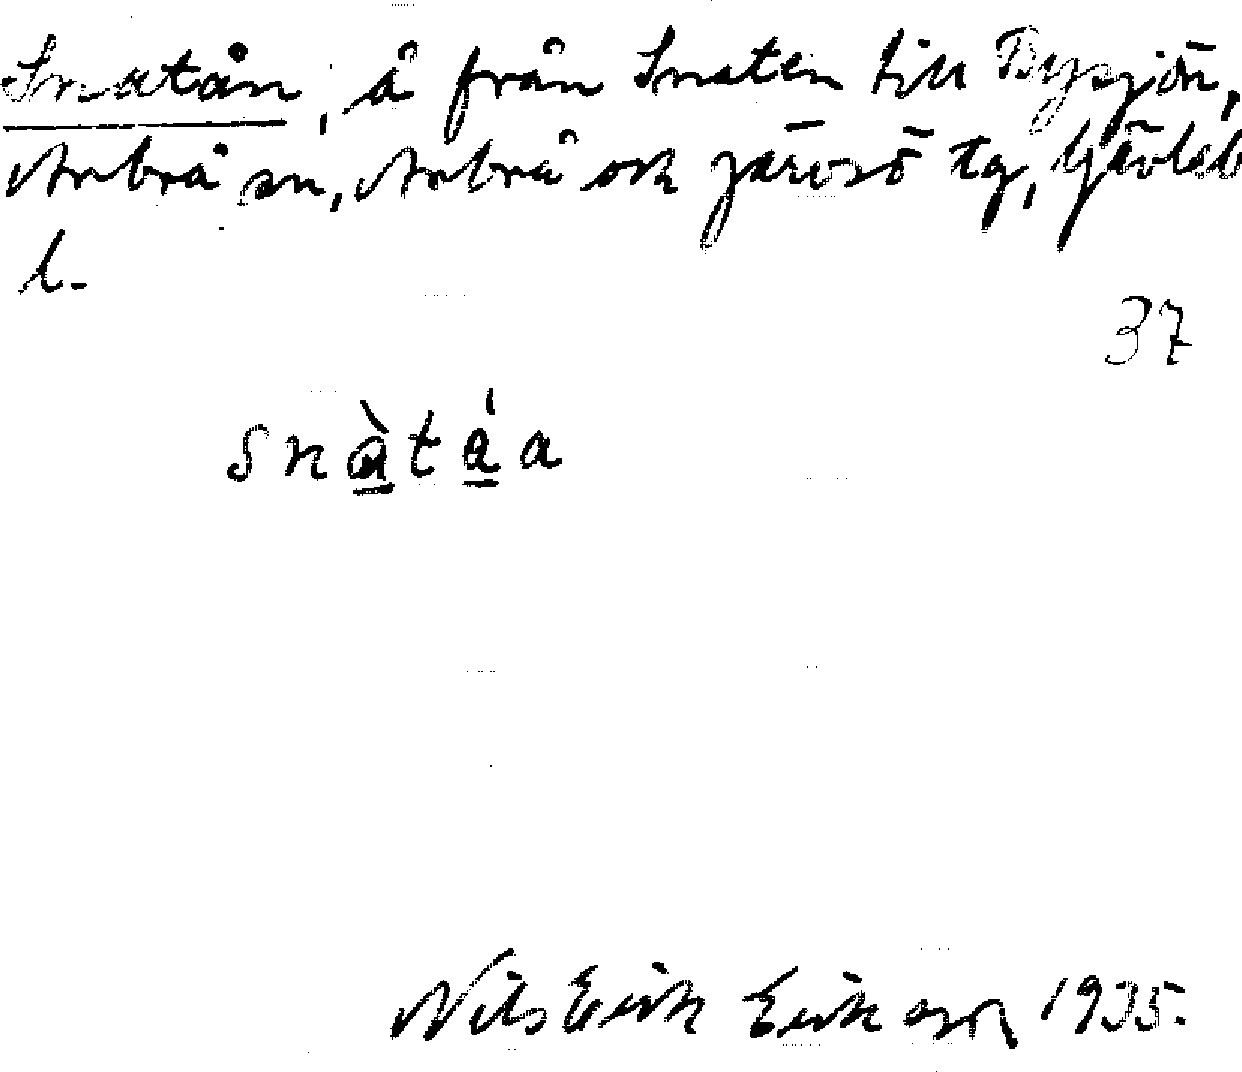 Snatån, å från Snaten till Bysjön,
Arbrå sn, Arbrå och Järvsö tg, Gävleb
l.
37
snàtáa
Nils Erik Eriksson 1935.